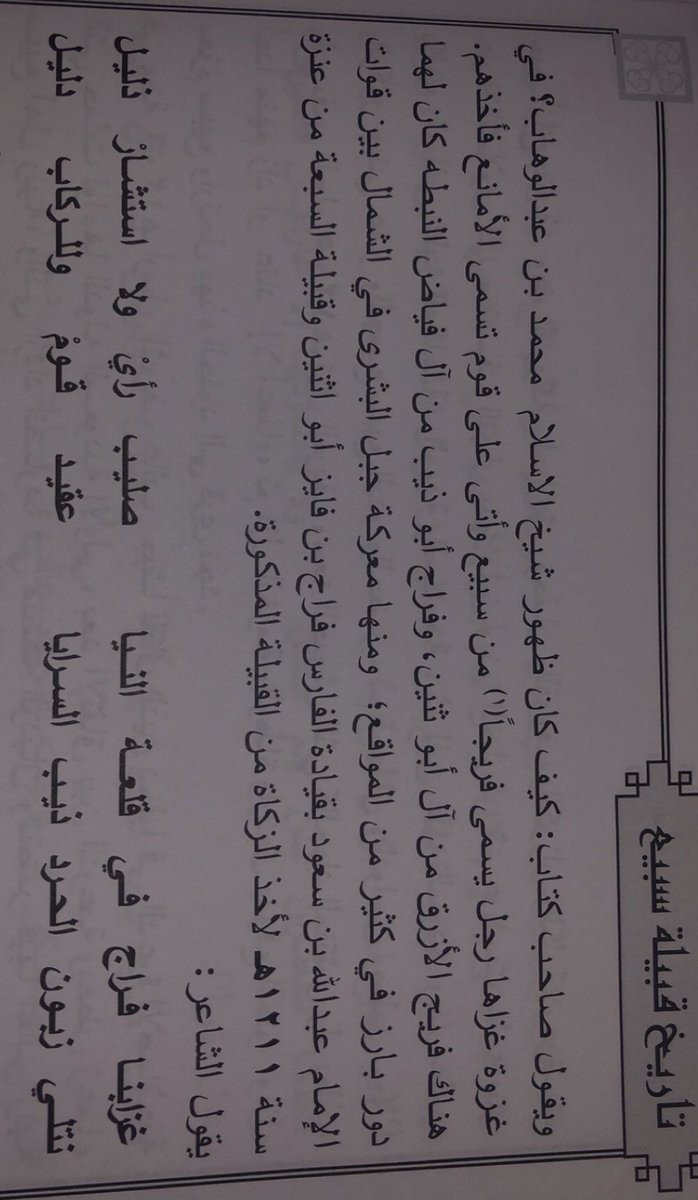 تاريخ قبيلة سبيع
ويقول صاحب كتاب: كيف كان ظهور شيخ الاسلام محمد بن عبدالوهاب؟ في
غزوة غزاها رجل يسمى فريجاً(١) من سبيع وأتى على قوم تسمى الأمانع فأخذهم.
هناك فريج الأزرق من آل أبو ثنين، وفراج أبو ذيب من آل فياض النبطه كان لهما
دور بارز في كثير من المواقع؛ ومنها معركة جبل البشرى في الشمال بين قوات
الإمام عبدالله بن سعود بقيادة الفارس فراج بن فايز أبو اثنين وقبيلة السبعة من عنزة
سنة ١٢١١هـ لأخذ الزكاة من القبيلة المذكورة.
يقول الشاعر:
غزابنا فراج في قلعة النيا صليب رأيْ ولا استشار ذليل
نتلي زبون الحرد ذيب السرايا عقيد قومْ وللركاب دليل